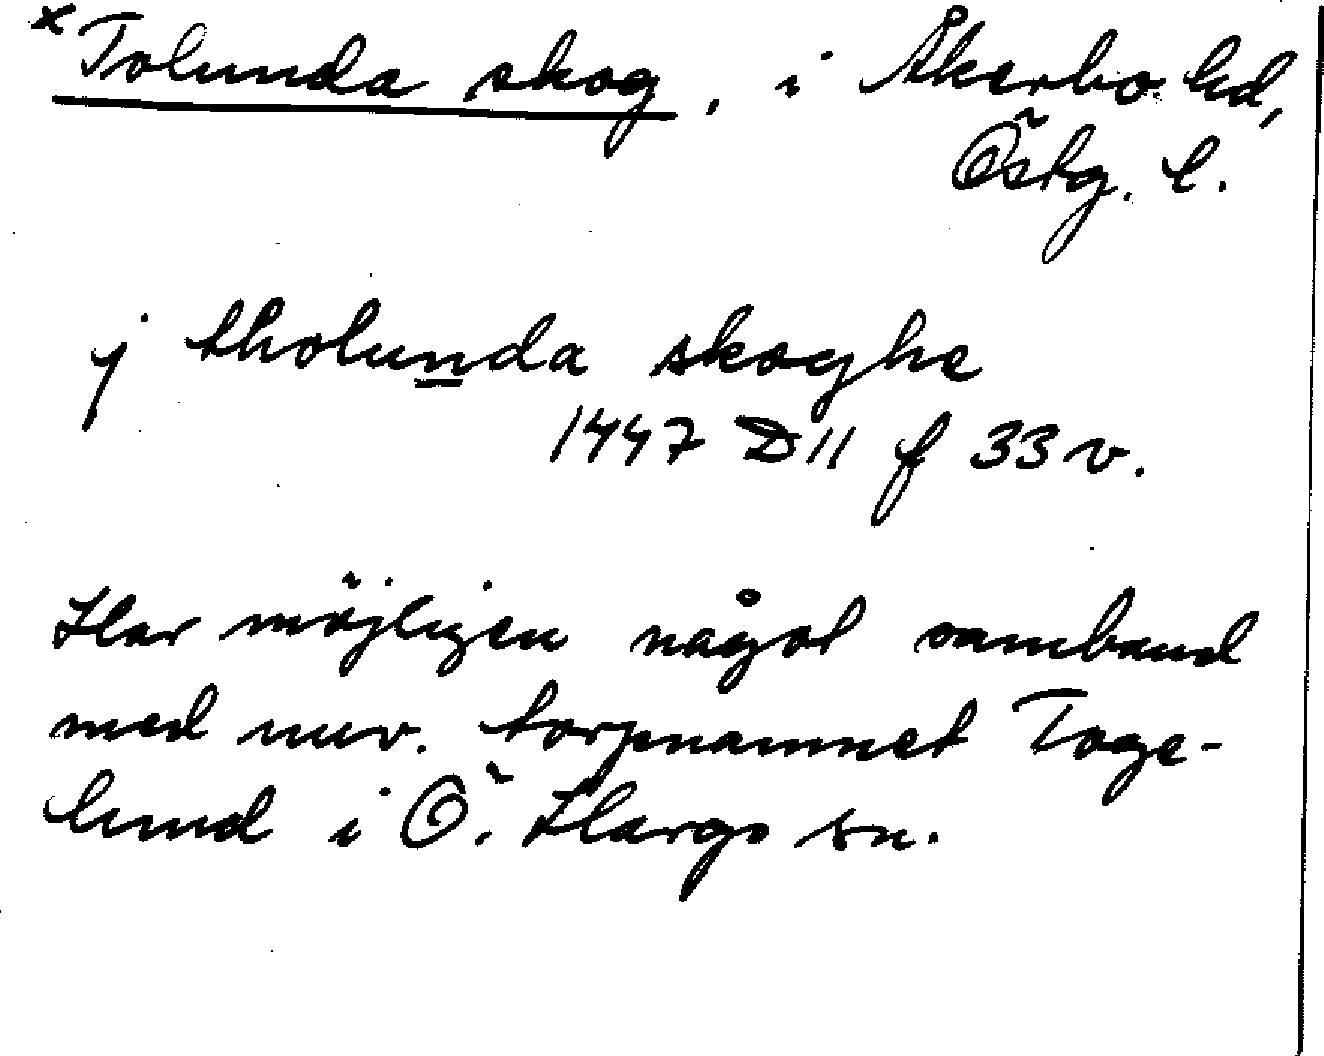 *Tolunda skog, i Åkerbo hd,
Östg. l.
j tholunda skoghe
1447 D 11 f 33 v.
Har möjligen något samband
med nuv. torpnamnet Toge-
lund i Ö. Hargs sn.